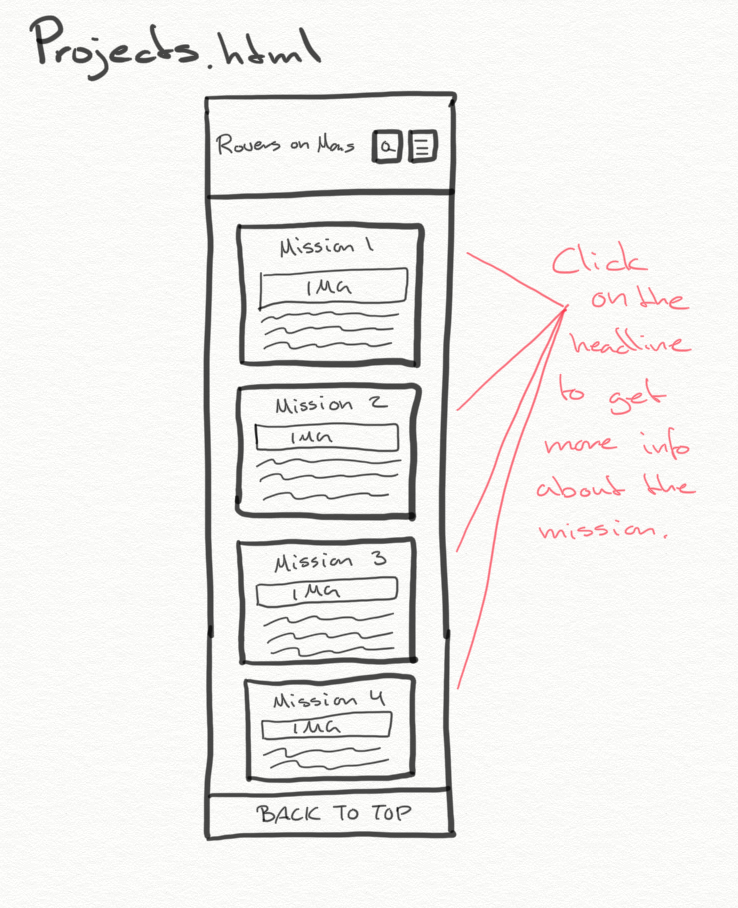 Projects.html
Rovers on Mars
Mission 1
IMG
Mission 2
IMG
Mission 3
IMG
Mission 4
IMG
BACK TO TOP
Click
on the
headline
to get
more info
about the
mission.